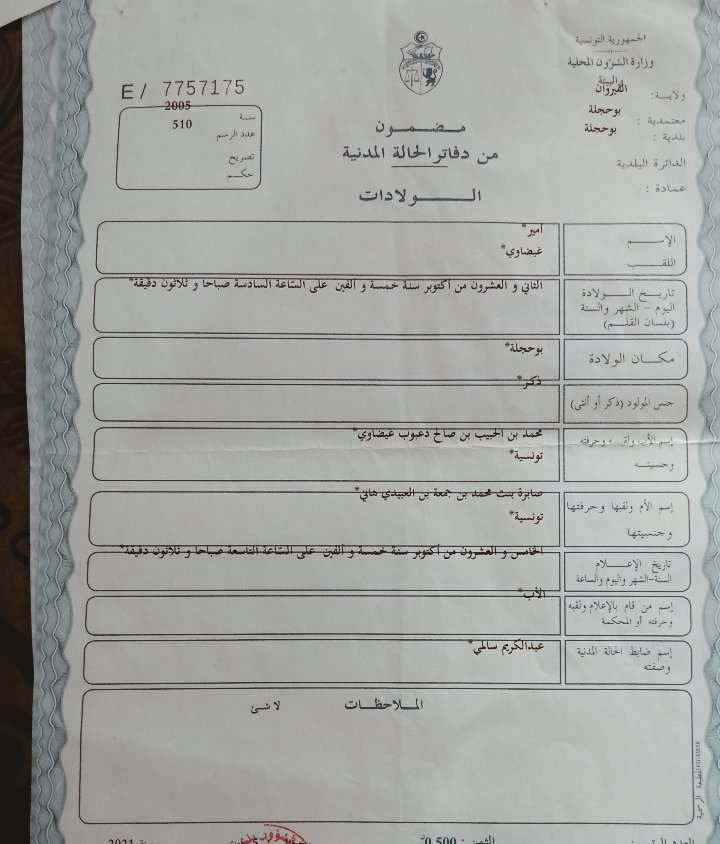 الجمهورية التونسية
وزارة الشؤون المحلية
والبيئة
ولاية: القيروان
معتمدية : بوحجلة
بلدية : بوحجلة
الدائرة البلدية
عمادة :
E/ 7757175
سنة 2005
عدد الرسم 510
تصريح
حكم
مضمون
من دفاتر الحالة المدنية
الولادات
الإسم أمير*
اللقب غيضاوي*
تاريخ الولادة
اليوم - الشهر والسنة
(بلسان القلم)
الثاني و العشرون من أكتوبر سنة خمسة و ألفين على الساعة السادسة صباحا و ثلاثون دقيقة*
مكان الولادة بوحجلة*
جنس المولود (ذكر أو أنثى) ذكر*
إسم الأب ولقبه وحرفته محمد بن الحبيب بن صالح دعبوب غيضاوي*
وجنسيته تونسية*
إسم الأم ولقبها وحرفتها صابرة بنت محمد بن جمعة بن العبيدي هاني*
وجنسيتها تونسية*
تاريخ الإعلام
السنة-الشهر واليوم والساعة
الخامس و العشرون من أكتوبر سنة خمسة و ألفين على الساعة التاسعة صباحا و ثلاثون دقيقة*
إسم من قام بالإعلام ولقبه
وحرفته أو المحكمة
الأب*
إسم ضابط الحالة المدنية
وصفته
عبدالكريم سالمي*
الملاحظات
لا شئ
الثمن : 0,500
2021